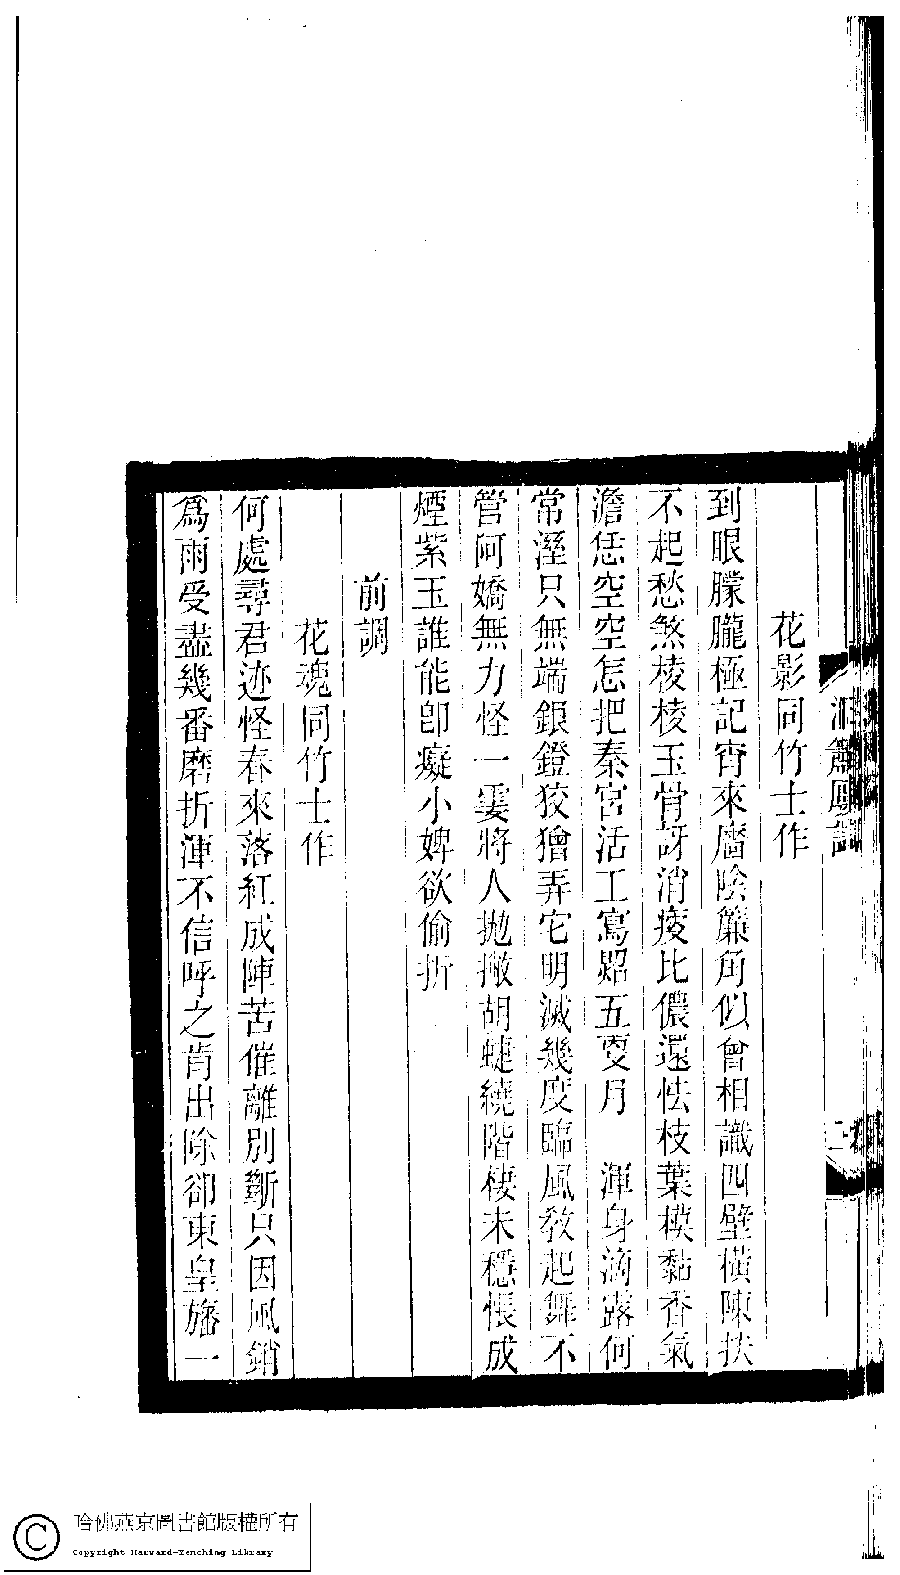 花影同竹士作
到眼朦朧極記宵來牆陰簾角似曾相識四壁橫陳扶
不起愁煞棱棱玉骨訝消瘦比儂還怯枝葉模黏香氣
澹恁空空怎把秦宮活工寫照五更月　渾身滴露何
常溼只無端銀鐙狡獪弄它明滅幾度臨風教起舞不
管阿嬌無力怪一霎將人拋撇胡蜨繞階棲未穩悵成
煙紫玉誰能卽癡小婢欲偷折
前調
花魂同竹士作
何處尋君迹怪春來落紅成陣苦催離別斷只因風銷
爲雨受盡幾番磨折渾不信呼之肯出除卻東皇旛一
哈佛燕京圖書館版權所有
Copyright Harvard-Yenching Library